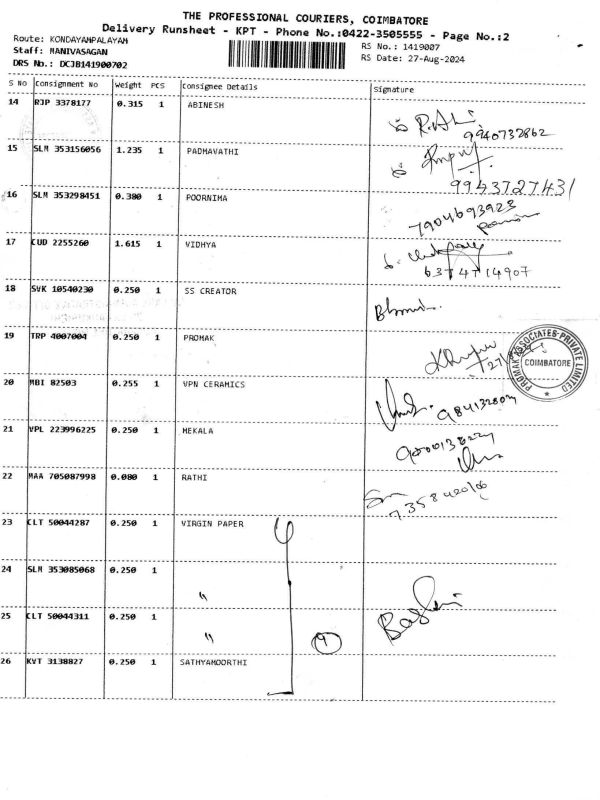 THE PROFESSIONAL COURIERS, COIMBATORE
Delivery Runsheet - KPT - Phone No.:0422-3505555 - Page No.:2
Route: KONDAYAMPALAYAM
Staff: MANIVASAGAN
DRS No.: DCJB141900702
RS No.: 1419007
RS Date: 27-Aug-2024
S No Consignment No Weight PCS Consignee Details Signature
14 RJP 3378177 0.315 1 ABINESH
9940732862
15 SLM 353156056 1.235 1 PADMAVATHI
9943727431
16 SLM 353298451 0.380 1 POORNIMA
7904693923
17 CUD 2255260 1.615 1 VIDHYA
6374714907
18 SVK 10540230 0.250 1 SS CREATOR
19 TRP 4007004 0.250 1 PROMAK
PROMAK ASSOCIATES PRIVATE LIMITED
COIMBATORE
20 MBI 82503 0.255 1 VPN CERAMICS
21 VPL 223996225 0.250 1 MEKALA
22 MAA 705087998 0.080 1 RATHI
23 CLT 50044287 0.250 1 VIRGIN PAPER
24 SLM 353085068 0.250 1 "
25 CLT 50044311 0.250 1 "
26 KVT 3138827 0.250 1 SATHYAMOORTHI